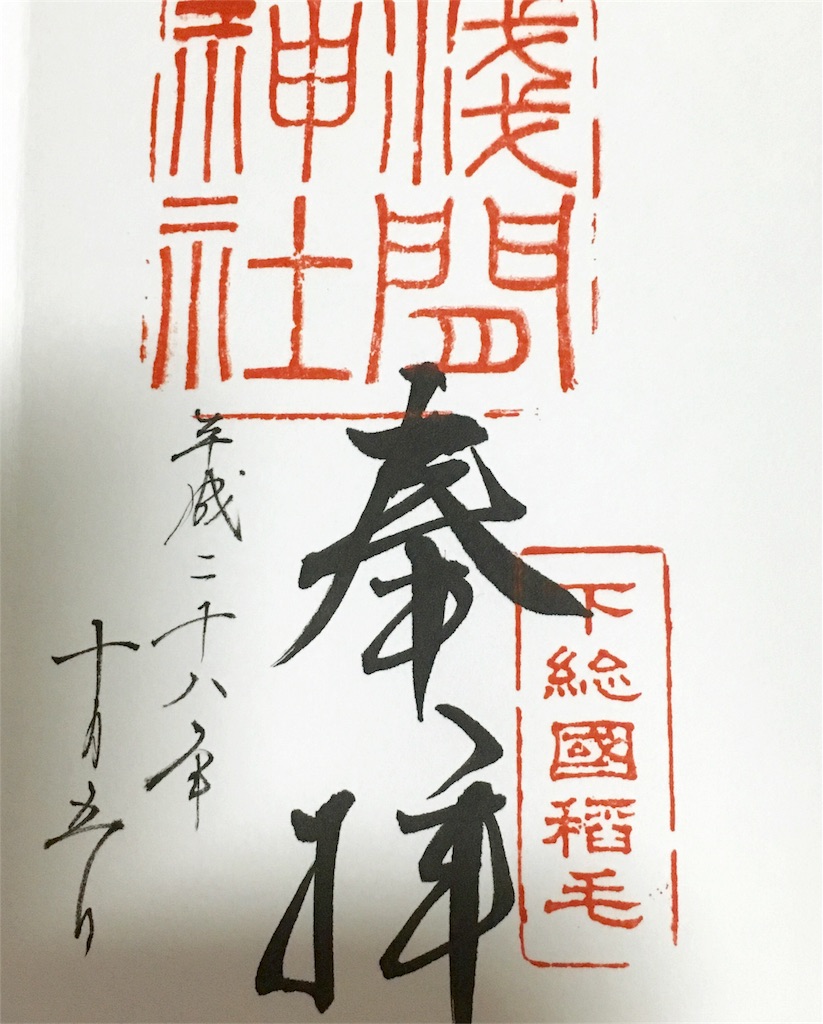 浅間
神社
奉拝
下総國稻毛
平成二十八年
十月五日